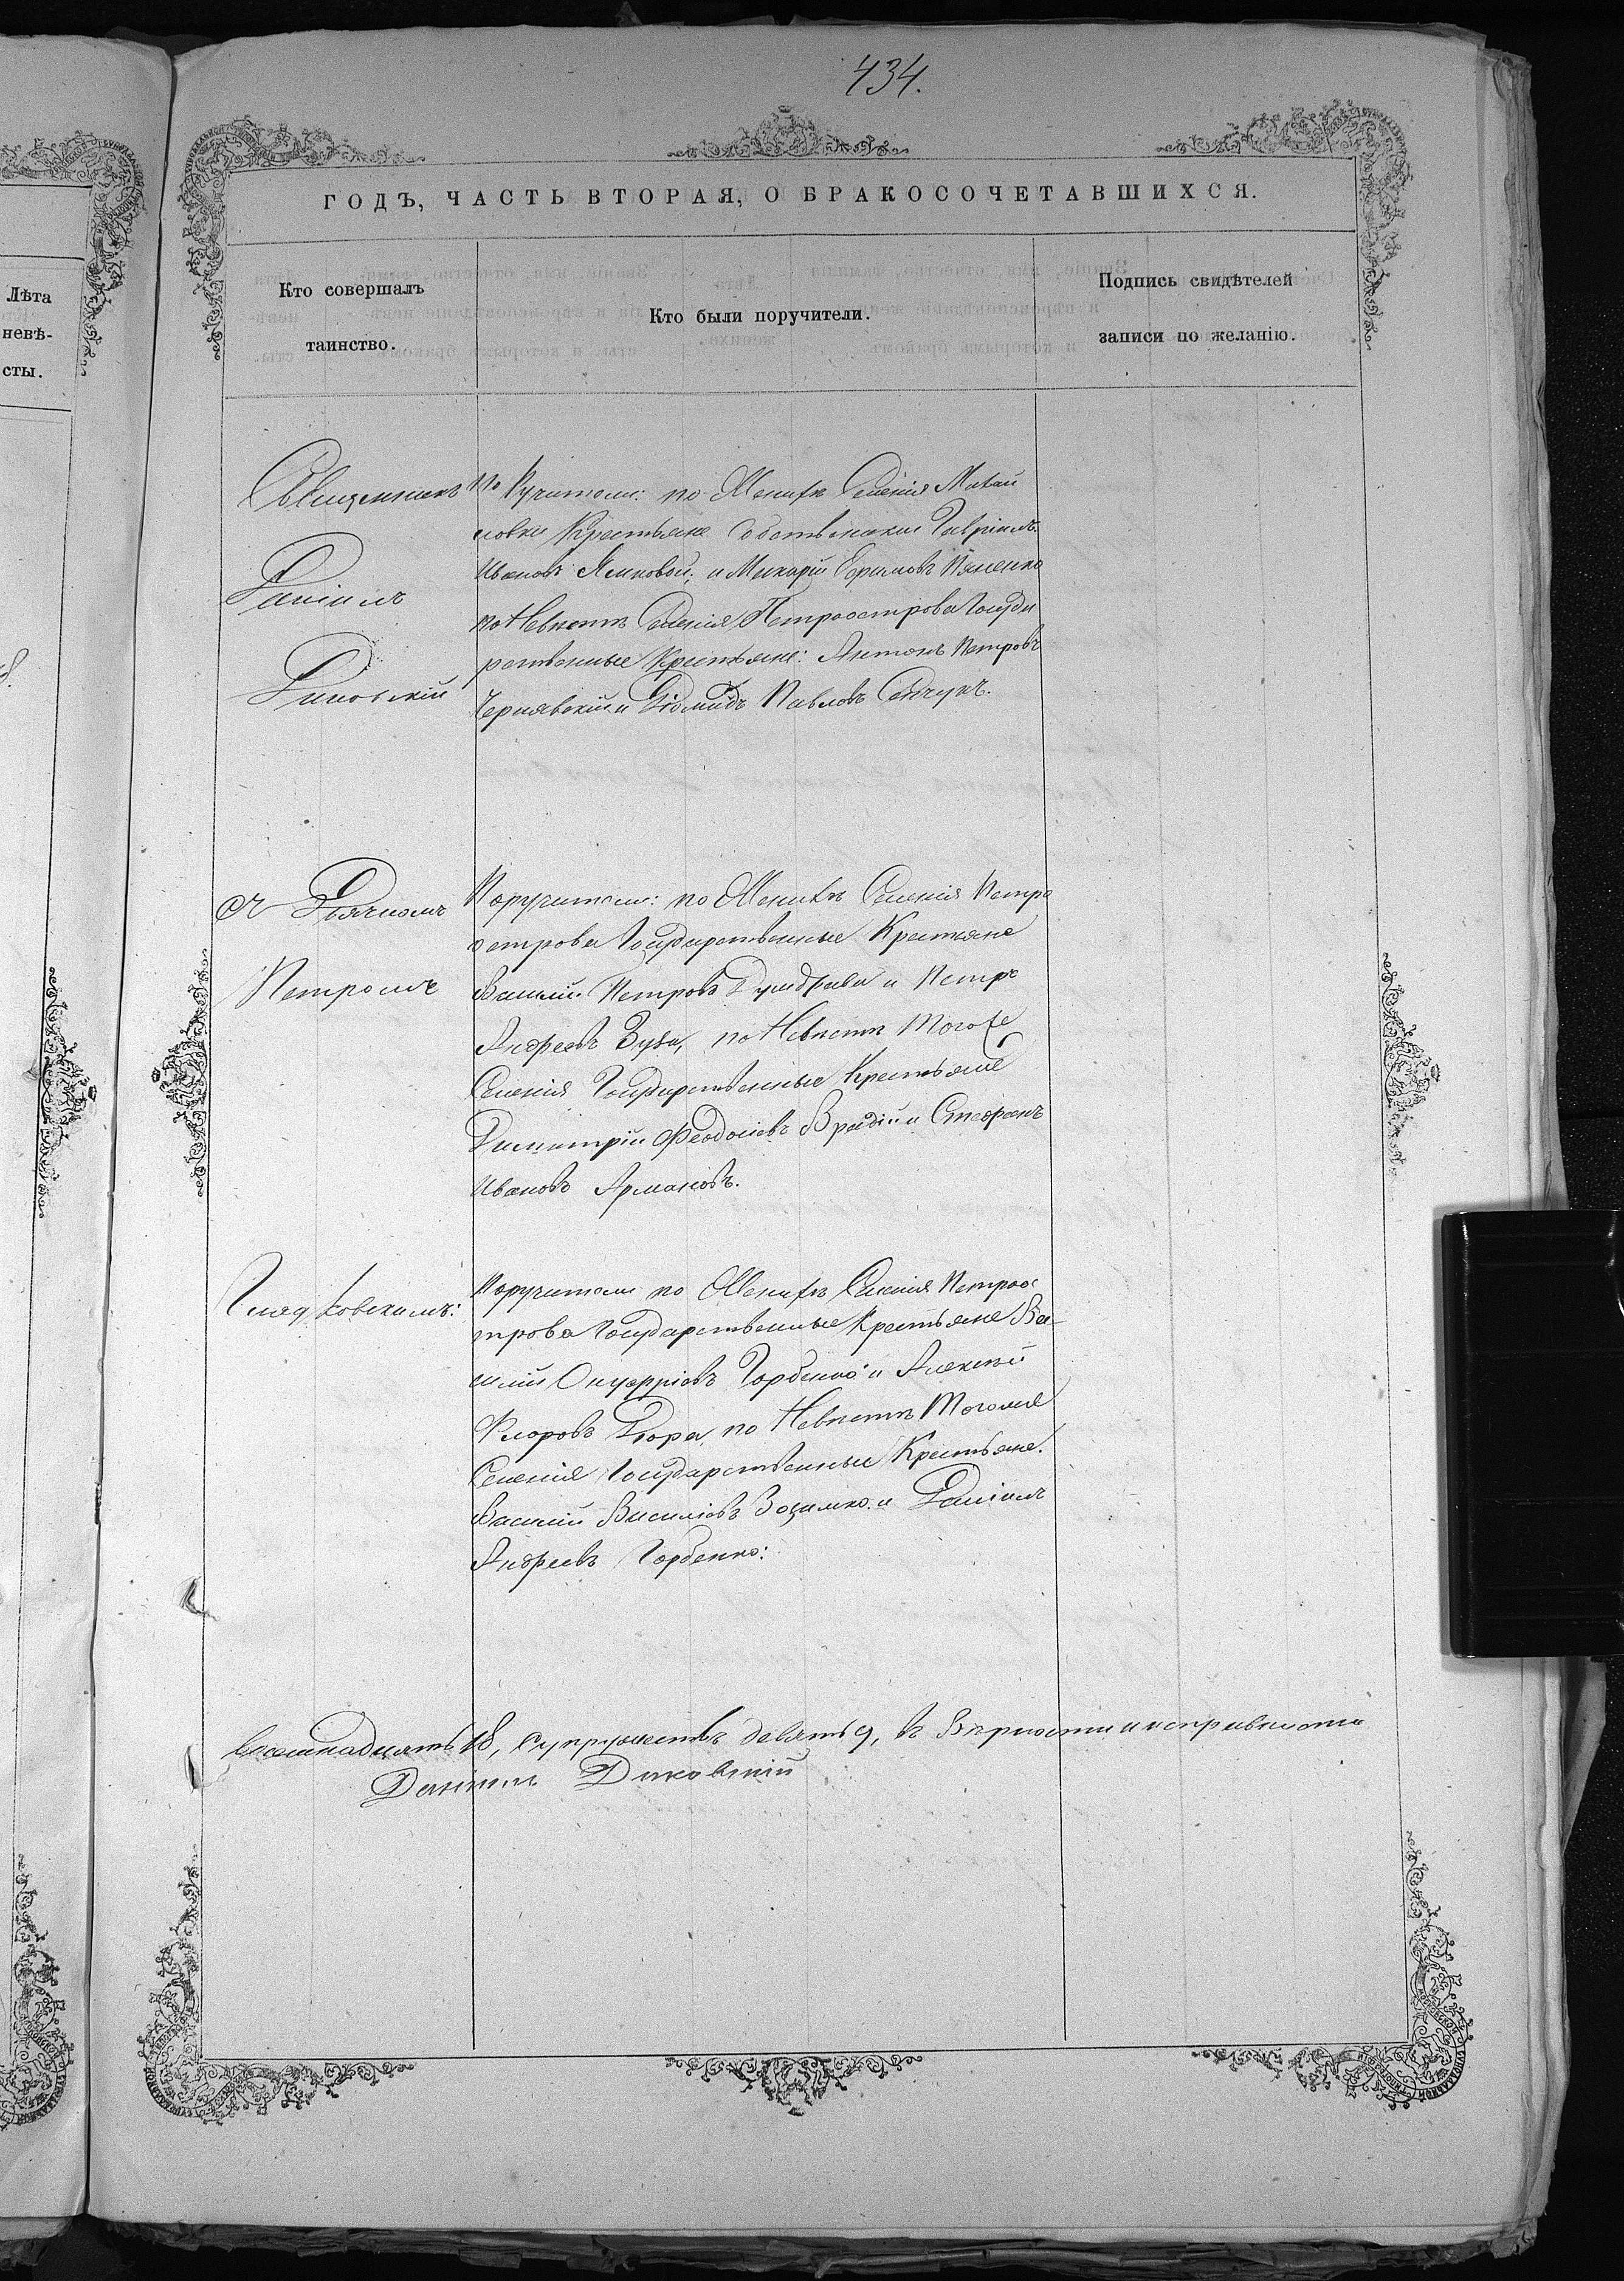 434.
ГОДЪ, ЧАСТЬ ВТОРАЯ, О БРАКОСОЧЕТАВШИХСЯ.
Лѣта
невѣ-
сты.
Кто совершалъ
таинство.
Кто были поручители.
Подпись свидѣтелей
записи по желанію.
Священникъ
Даніилъ
Диковскій
съ Дьячкомъ
Петромъ
Гладковскимъ:
По Ручители: по Женихѣ Селенія Михай
ловки Крестьяне Собственники Гавріилъ
Ивановъ и Макарій Ефимовъ
по Невѣстѣ Селенія Петроострова Госуда
рственные Крестьяне: Антонъ Петровъ
Чернявскій и Діомидъ Павловъ
Поручители: по Женихѣ Селенія Петро
острова Государственные Крестьяне
Василій Петровъ и Петръ
Андреевъ Зуба, по Невѣстѣ Тогоже
Селенія Государственные Крестьяне
Димитрій Феодосіевъ Врадій и Стефанъ
Ивановъ Армановъ.
Поручители по Женихѣ Селенія Петроос
трова Государственные Крестьяне Ва-
силій Онуфріевъ Горбенко и Алексѣй
Флоровъ Дюра, по Невѣстѣ Тогоже
Селенія Государственные Крестьяне.
Василій Василіевъ и Даніилъ
Андреевъ Горбенко:
восемнадцать 18, супружествъ девять 9, въ вѣрности и исправности
Даніилъ Диковскій